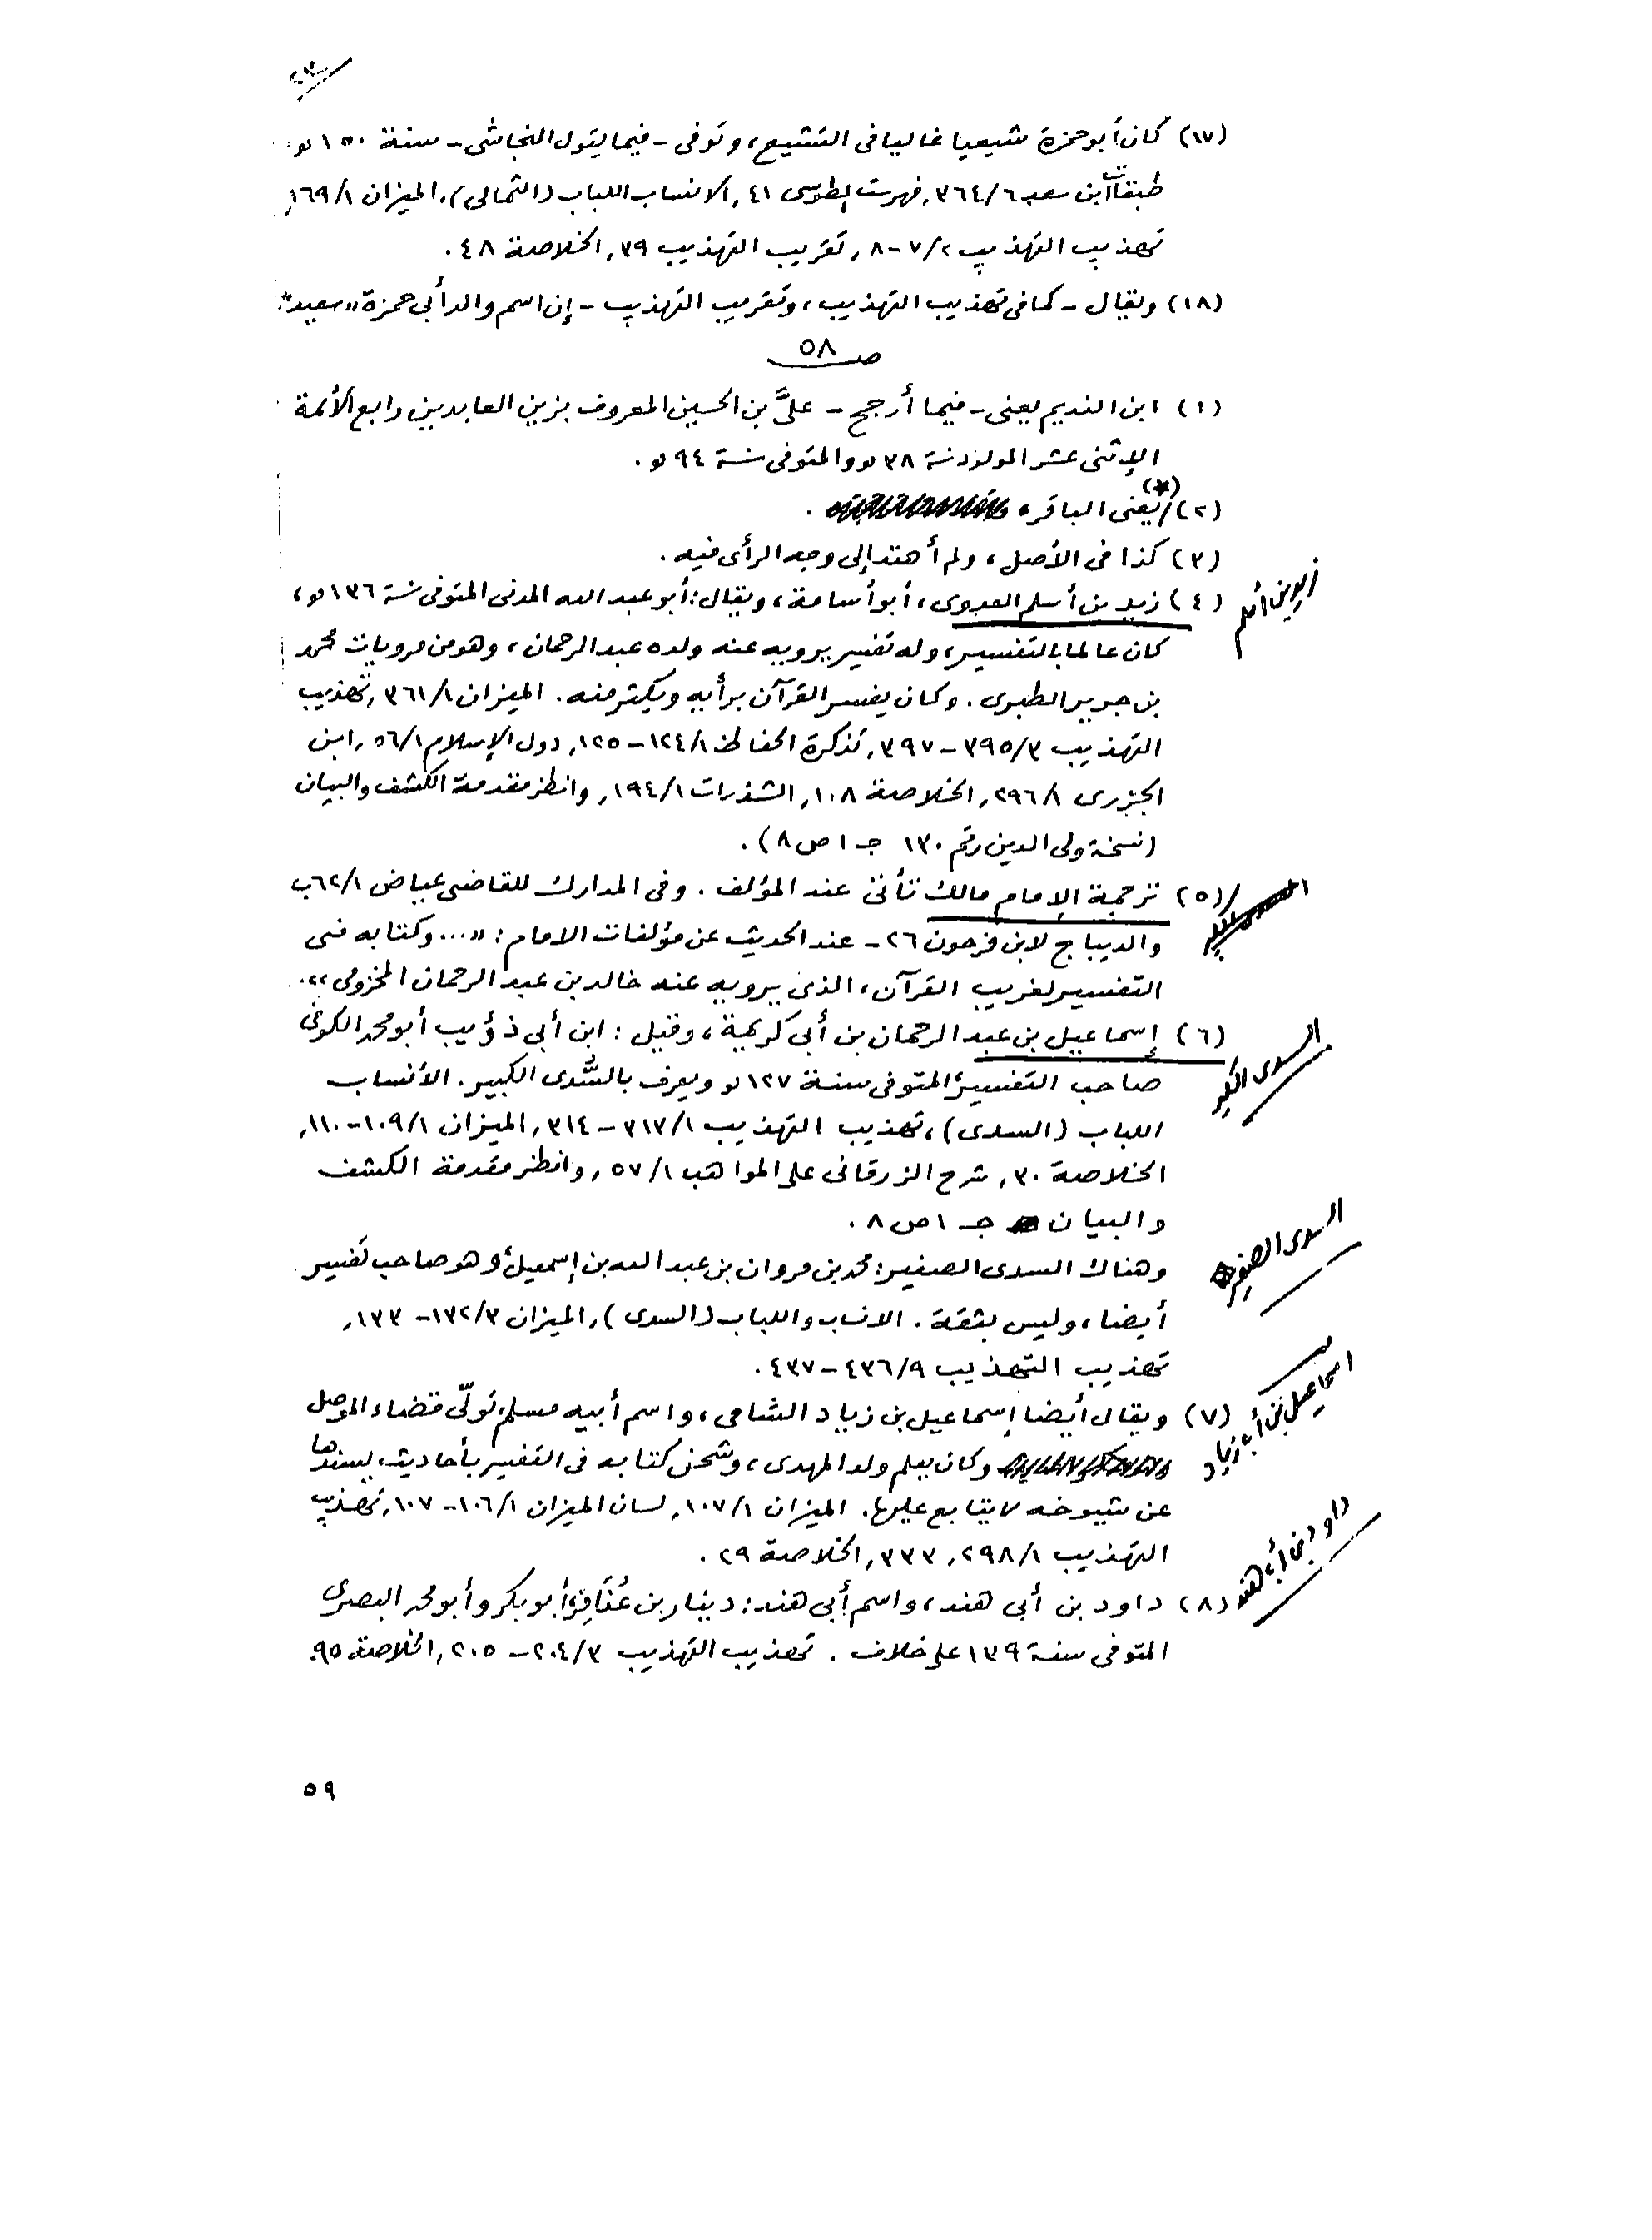 (١٧) كان أبو حمزة شيعيا غاليا فى التشيع، وتوفى - فيما يقول النجاشى - سنة ١٥٠ هـ.
طبقات ابن سعد ٣٦٤/٦، فهرست الطوسى ٤١، الانساب اللباب (الثمالى)، الميزان ١٦٩/١،
تهذيب التهذيب ٧/٢-٨، تقريب التهذيب ٣٩، الخلاصة ٤٨.
(١٨) ويقال - كما فى تهذيب التهذيب، وتقريب التهذيب - إن اسم والد أبي حمزة «سعيد».
صـ ٥٨
(١) ابن النديم يعنى - فيما أرجح - علىَّ بن الحسين المعروف بزين العابدين رابع الأئمة
الإثنى عشر المولود سنة ٣٨ هـ والمتوفى سنة ٩٤ هـ.
(*)
(٢) يعنى الباقر.
(٣) كذا فى الأصل، ولم أهتد إلى وجه الرأى فيه.
زيد بن أسلم
(٤) زيد بن أسلم العدوى، أبو أسامة، ويقال: أبو عبد الله المدنى المتوفى سنة ١٣٦ هـ،
كان عالما بالتفسير، وله تفسير يرويه عنه ولده عبد الرحمان، وهو من مرويات محمد
بن جرير الطبرى. وكان يفسر القرآن برأيه ويكثر منه. الميزان ٣٦١/١، تهذيب
التهذيب ٣٩٥/٣ - ٣٩٧، تذكرة الحفاظ ١٢٤/١ - ١٢٥، دول الإسلام ٥٦/١، ابن
الجزرى ٢٩٦/١، الخلاصة ١٠٨، الشذرات ١٩٤/١، وانظر مقدمة الكشف والبيان
(نسخة ولى الدين رقم ١٣٠ جـ ١ ص ٨).
(٥) ترجمة الإمام مالك تأتى عند المؤلف. وفى المدارك للقاضى عياض ٦٢/١ب
والديباج لابن فرحون ٢٦ - عند الحديث عن مؤلفات الامام: «... وكتابه فى
التفسير لغريب القرآن، الذى يرويه عنه خالد بن عبد الرحمان المخزومى».
السدى الكبير
(٦) إسماعيل بن عبد الرحمان بن أبى كريمة، وقيل: ابن أبي ذؤيب أبو محمد الكوفى
صاحب التفسير، المتوفى سنة ١٢٧ هـ ويعرف بالسُّدى الكبير. الأنساب
اللباب (السدى)، تهذيب التهذيب ٣١٣/١ - ٣١٤، الميزان ١٠٩/١-١١٠،
الخلاصة ٣٠، شرح الزرقانى على المواهب ٥٧/١، وانظر مقدمة الكشف
والبيان جـ ١ ص ٨.
السدى الصغير
وهناك السدى الصغير: محمد بن مروان بن عبد الله بن إسمعيل، وهو صاحب تفسير
أيضا، وليس بثقة. الانساب واللباب (السدى)، الميزان ١٣٢/٣-١٣٣،
تهذيب التهذيب ٤٣٦/٩ - ٤٣٧.
اسماعيل بن أبى زياد
(٧) ويقال أيضا إسماعيل بن زياد الشامى، واسم أبيه مسلم، تولّى قضاء الموصل
وكان يعلم ولد المهدى، وشحن كتابه فى التفسير بأحاديث يسندها
عن شيوخه لا يتابع عليها. الميزان ١٠٧/١، لسان الميزان ١٠٦/١-١٠٧، تهذيب
التهذيب ٢٩٨/١، ٣٣٣، الخلاصة ٢٩.
داود بن أبى هند
(٨) داود بن أبى هند، واسم أبى هند: دينار بن عُذَافِر، أبو بكر وأبو محمد البصرى
المتوفى سنة ١٣٩ على خلاف. تهذيب التهذيب ٢٠٤/٣ - ٢٠٥، الخلاصة ٩٥.
٥٩